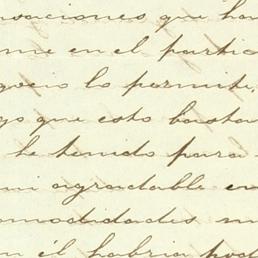 saciones que han
me en el partic
quejo lo permite,
yo que esto basta
he tenido para
mi agradable en
omodidades m
n él habria pod